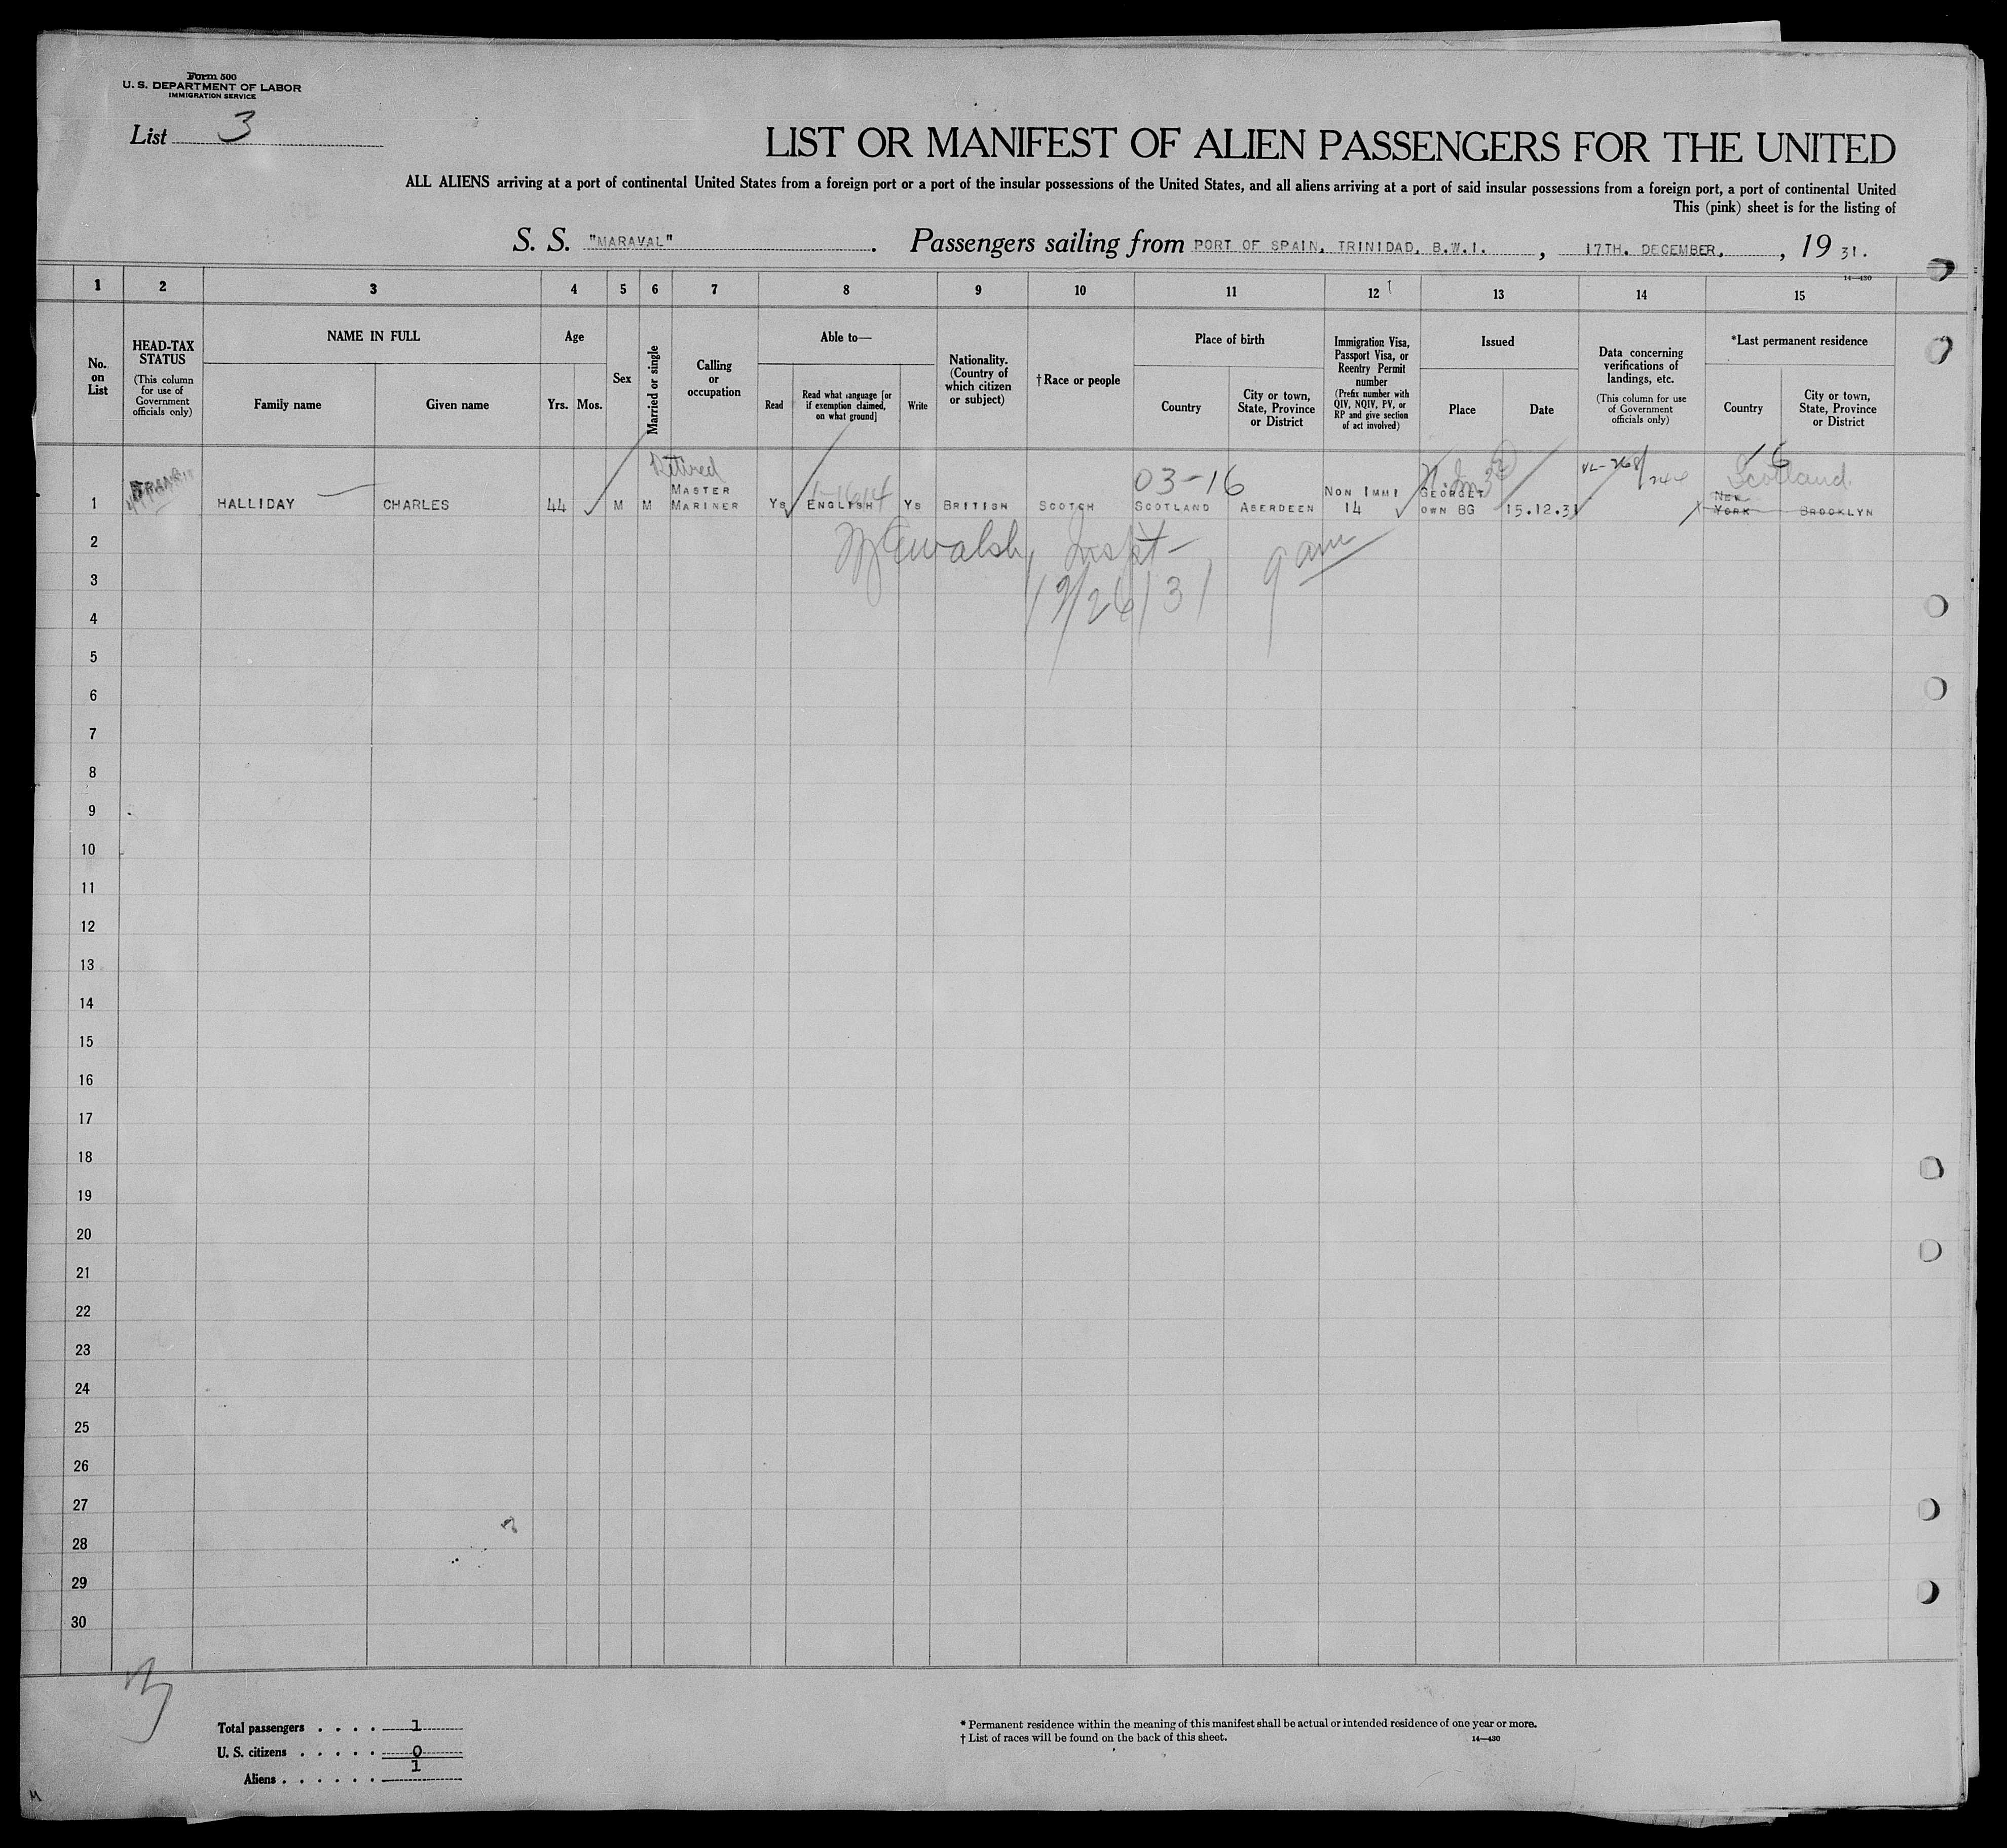 Form 500
U. S. DEPARTMENT OF LABOR
IMMIGRATION SERVICE
List 3
LIST OR MANIFEST OF ALIEN PASSENGERS FOR THE UNITED
ALL ALIENS arriving at a port of continental United States from a foreign port or a port of the insular possessions of the United States, and all aliens arriving at a port of said insular possessions from a foreign port, a port of continental United
This (pink) sheet is for the listing of
S. S. "MARAVAL". Passengers sailing from PORT OF SPAIN, TRINIDAD, B.W.I. , 17TH. DECEMBER, , 19 31.
14—430
1 2 3 4 5 6 7 8 9 10 11 12 13 14 15
No. on List
HEAD-TAX STATUS
(This column for use of Government officials only)
NAME IN FULL
Family name
Given name
Age
Yrs. Mos.
Sex
Married or single
Calling or occupation
Able to—
Read
Read what language [or if exemption claimed, on what ground]
Write
Nationality. (Country of which citizen or subject)
†Race or people
Place of birth
Country
City or town, State, Province or District
Immigration Visa, Passport Visa, or Reentry Permit number
(Prefix number with QIV, NQIV, PV, or RP and give section of act involved)
Issued
Place
Date
Data concerning verifications of landings, etc.
(This column for use of Government officials only)
*Last permanent residence
Country
City or town, State, Province or District
TRANSIT
Retired
03-16
16
Scotland
1 HALLIDAY CHARLES 44 M M MASTER MARINER Ys ENGLISH Ys BRITISH SCOTCH SCOTLAND ABERDEEN NON IMMI 14 GEORGET OWN BG 15.12.31 NEW YORK BROOKLYN
2
Walsh, Inspt 9 am
3
12/26/31
4
5
6
7
8
9
10
11
12
13
14
15
16
17
18
19
20
21
22
23
24
25
26
27
28
29
30
3
Total passengers . . . . 1
U. S. citizens . . . . . 0
Aliens . . . . . . 1
* Permanent residence within the meaning of this manifest shall be actual or intended residence of one year or more.
† List of races will be found on the back of this sheet.
14—430